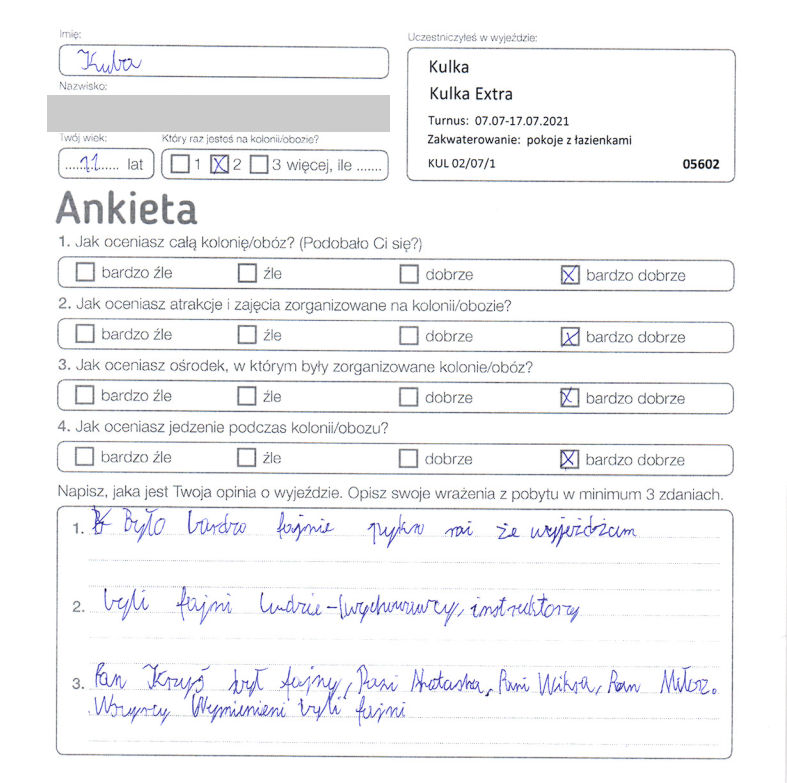 Imię:
Kuba
Nazwisko:
Twój wiek:
.....11...... lat
Który raz jesteś na kolonii/obozie?
1 X 2 3 więcej, ile .......
Uczestniczyłeś w wyjeździe:
Kulka
Kulka Extra
Turnus: 07.07-17.07.2021
Zakwaterowanie: pokoje z łazienkami
KUL 02/07/1 05602
Ankieta
1. Jak oceniasz całą kolonię/obóz? (Podobało Ci się?)
bardzo źle źle dobrze X bardzo dobrze
2. Jak oceniasz atrakcje i zajęcia zorganizowane na kolonii/obozie?
bardzo źle źle dobrze X bardzo dobrze
3. Jak oceniasz ośrodek, w którym były zorganizowane kolonie/obóz?
bardzo źle źle dobrze X bardzo dobrze
4. Jak oceniasz jedzenie podczas kolonii/obozu?
bardzo źle źle dobrze X bardzo dobrze
Napisz, jaka jest Twoja opinia o wyjeździe. Opisz swoje wrażenia z pobytu w minimum 3 zdaniach.
1. Było bardzo fajnie że wyjeżdżam
2. byli fajni ludzie - wychowawcy, instruktorzy
3. Pan Krzyś był fajny, Pani Pani Wikra, Pan Miłosz.
Wszyscy Wymienieni byli fajni